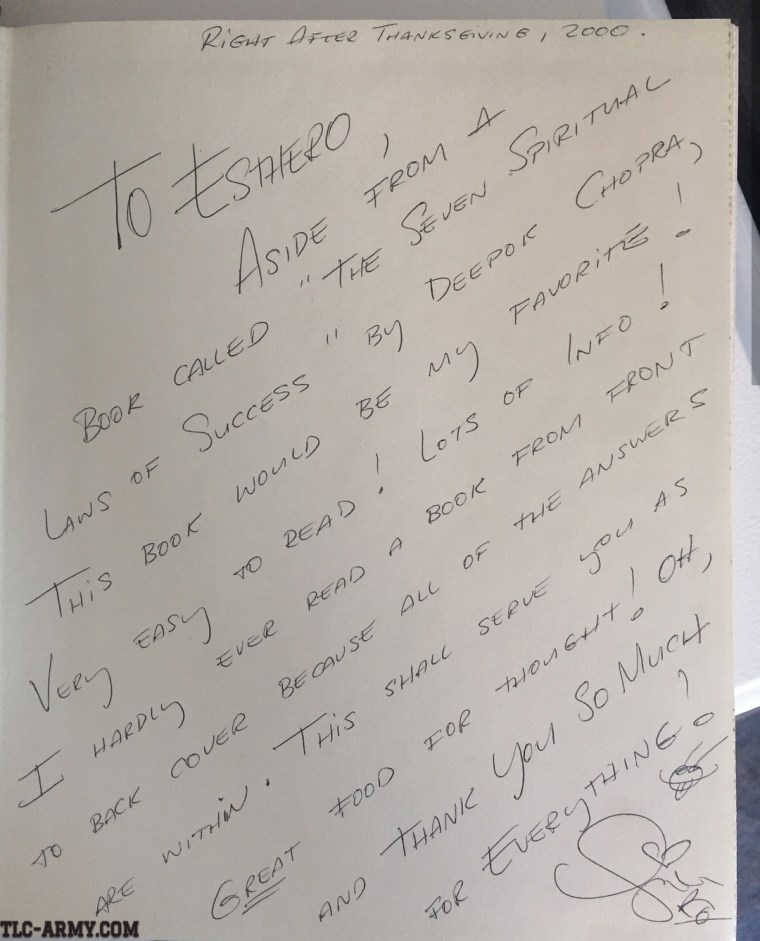 RIGHT AFTER THANKSGIVING, 2000.
TO ESTHERO,
ASIDE FROM A
BOOK CALLED "THE SEVEN SPIRITUAL
LAWS OF SUCCESS" BY DEEPOK CHOPRA,
THIS BOOK WOULD BE MY FAVORITE!
VERY EASY TO READ! LOTS OF INFO!
I HARDLY EVER READ A BOOK FROM FRONT
TO BACK COVER BECAUSE ALL OF THE ANSWERS
ARE WITHIN. THIS SHALL SERVE YOU AS
GREAT FOOD FOR THOUGHT! OH,
AND THANK YOU SO MUCH
FOR EVERYTHING!
TLC-ARMY.COM